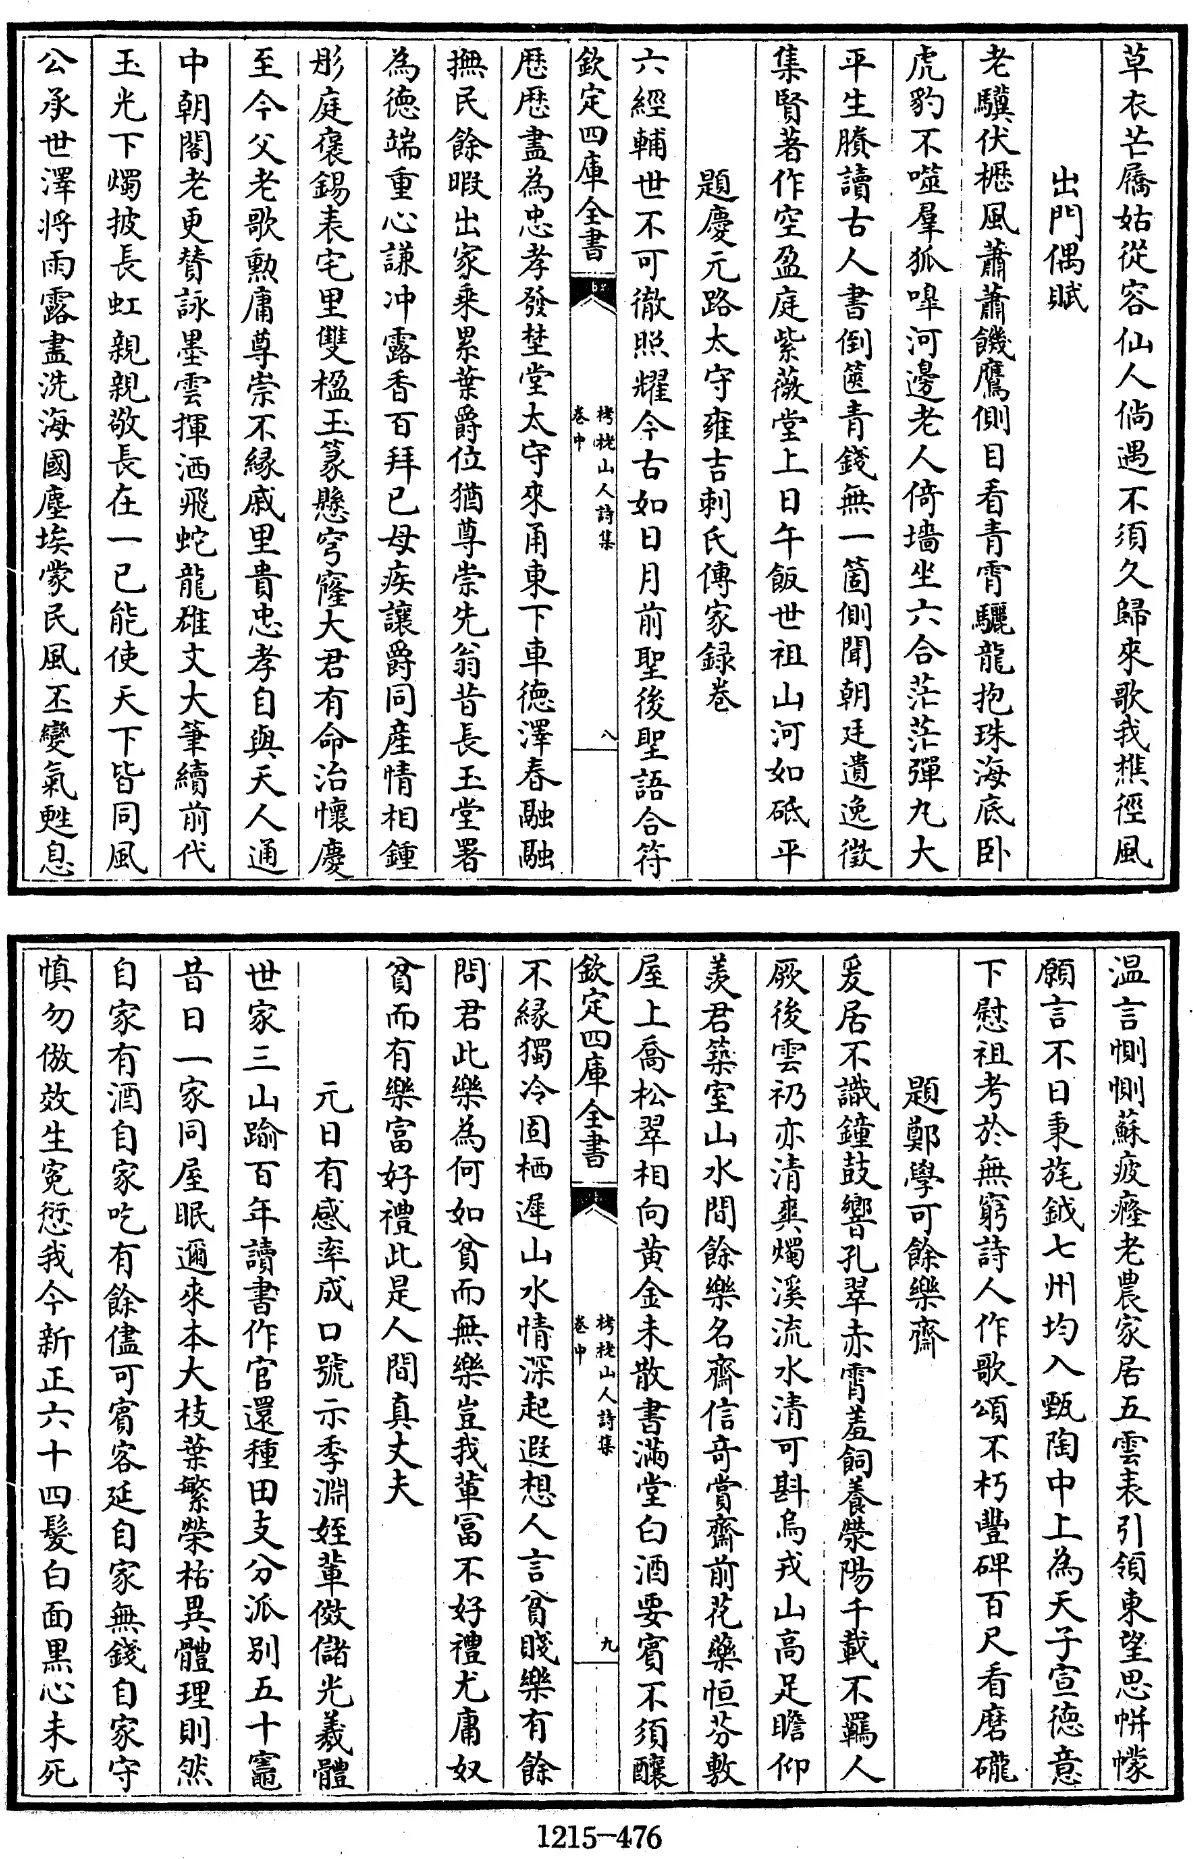 草衣芒屩姑從容仙人倘遇不須久歸來歌我樵徑風
出門偶賦
老驥伏櫪風蕭蕭饑鷹側目看青霄驪龍抱珠海底卧
虎豹不噬羣狐嘷河邊老人倚墻坐六合茫茫彈丸大
平生賸讀古人書倒篋青錢無一箇側聞朝廷遺逸徵
集賢著作空盈庭紫薇堂上日午飯世祖山河如砥平
題慶元路太守雍吉剌氏傳家録卷
六經輔世不可徹照耀今古如日月前聖後聖語合符
欽定四庫全書
栲栳山人詩集
卷中
八
歴歴盡為忠孝發埜堂太守來甬東下車德澤春融融
撫民餘暇出家乘累葉爵位猶尊崇先翁昔長玉堂署
為德端重心謙冲露香百拜已母疾讓爵同産情相鍾
彤庭褒錫表宅里雙楹玉篆懸穹窿大君有命治懷慶
至今父老歌勲庸尊崇不縁戚里貴忠孝自與天人通
中朝閣老更賛詠墨雲揮洒飛蛇龍雄文大筆續前代
玉光下燭披長虹親親敬長在一已能使天下皆同風
公承世澤將雨露盡洗海國塵埃蒙民風丕變氣甦息
温言惻惻蘇疲癃老農家居五雲表引領東望思帡幪
願言不日秉旄鉞七州均入甄陶中上為天子宣德意
下慰祖考於無窮詩人作歌頌不朽豐碑百尺看磨礲
題鄭學可餘樂齋
爰居不識鐘鼓響孔翠赤霄羞飼養滎陽千載不羈人
厥後雲礽亦清爽燭溪流水清可斟烏戎山高足瞻仰
羨君築室山水間餘樂名齋信奇賞齋前花藥恒芬敷
屋上喬松翠相向黄金未散書滿堂白酒要賓不須釀
欽定四庫全書
栲栳山人詩集
卷中
九
不縁獨冷固栖遲山水情深起遐想人言貧賤樂有餘
問君此樂為何如貧而無樂豈我輩富不好禮尤庸奴
貧而有樂富好禮此是人間真丈夫
元日有感率成口號示季淵姪輩儆儲光羲體
世家三山踰百年讀書作官還種田支分派别五十竈
昔日一家同屋眠邇來本大枝葉繁榮枯異體理則然
自家有酒自家吃有餘儘可賓客延自家無錢自家守
慎勿倣效生寃愆我今新正六十四髮白面黒心未死
1215-476